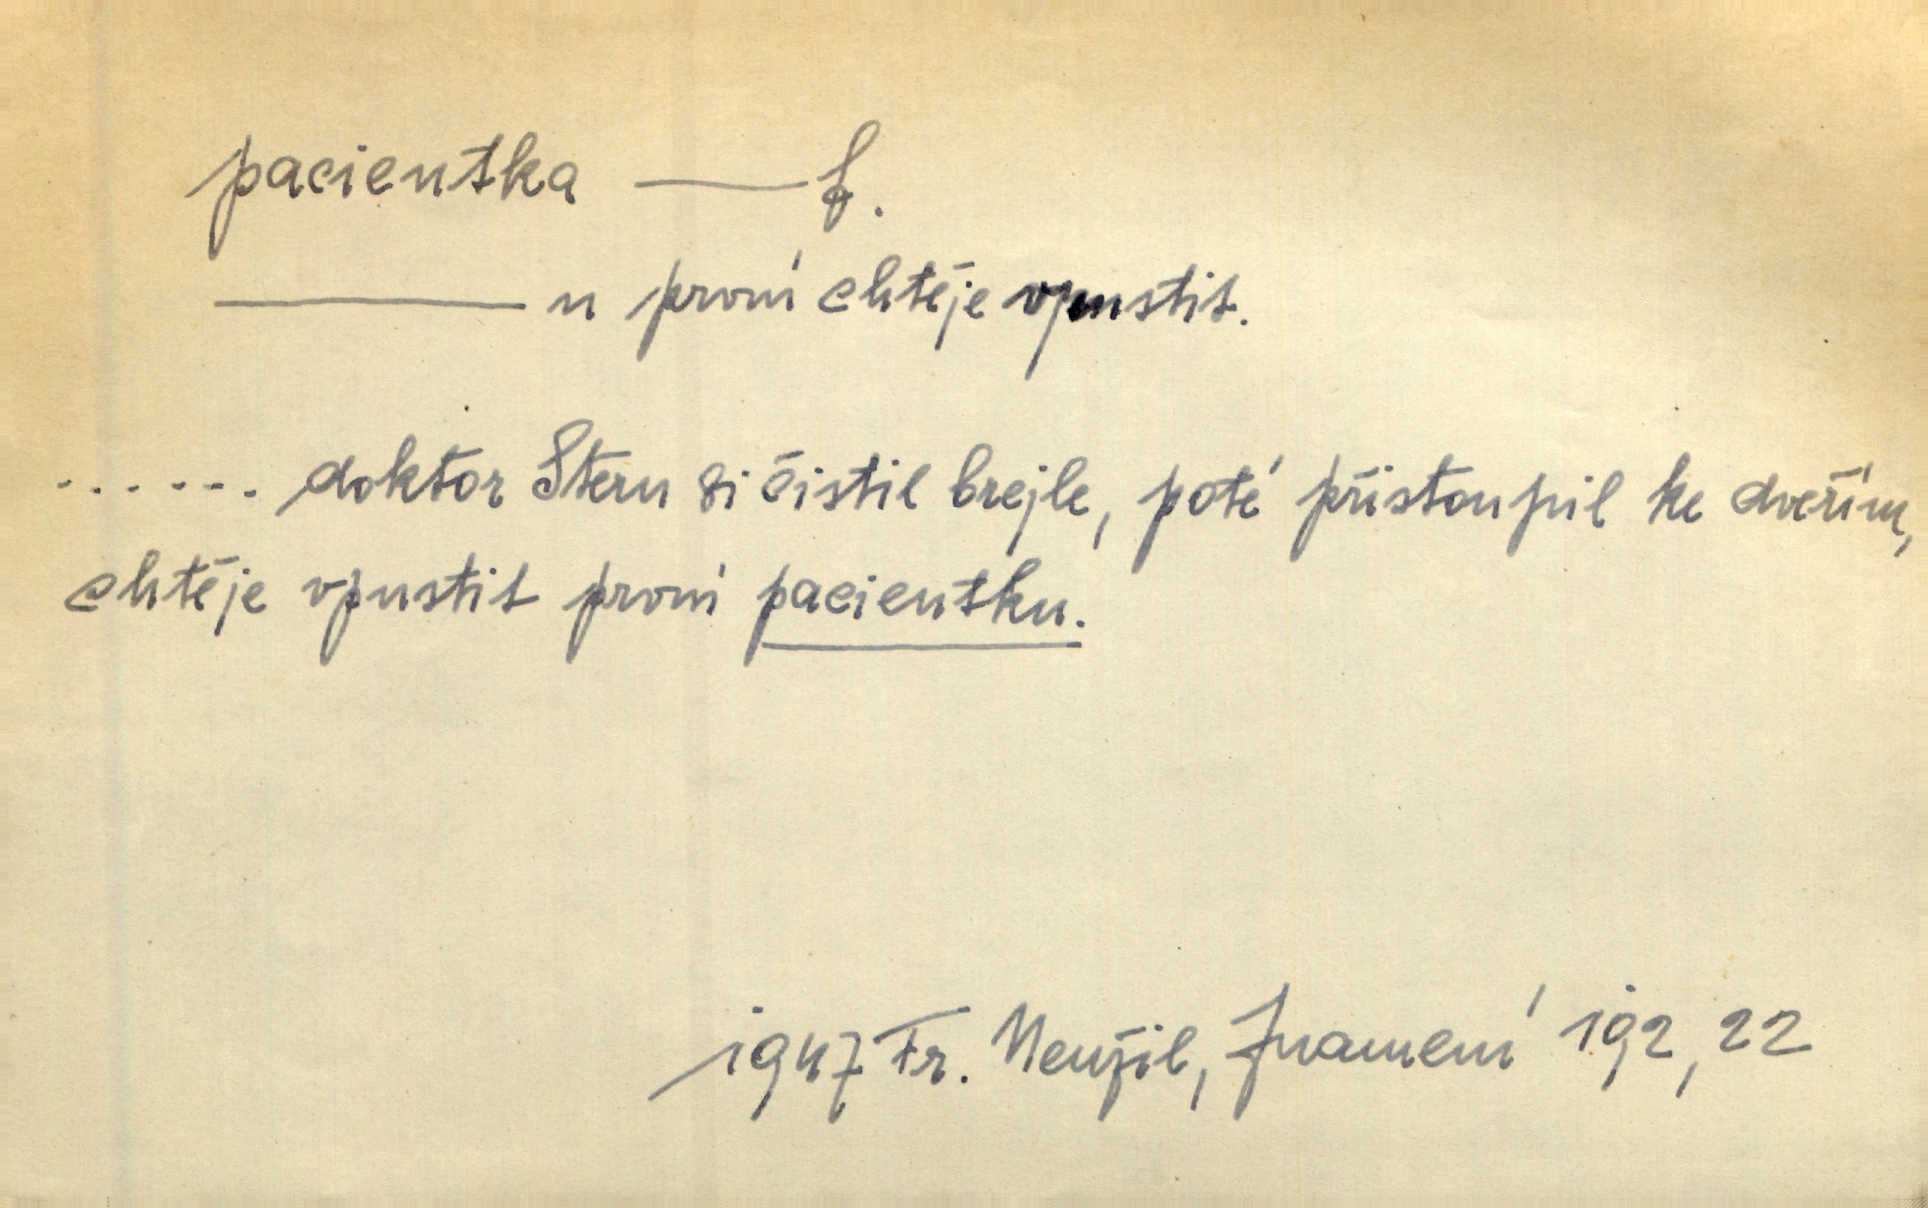 pacientka — f.
— u první chtěje vpustit.
...... doktor Stern si čistil brejle, poté přistoupil ke dveřím,
chtěje vpustit první pacientku.
1947 Fr. Neužil, Znamení 192, 22